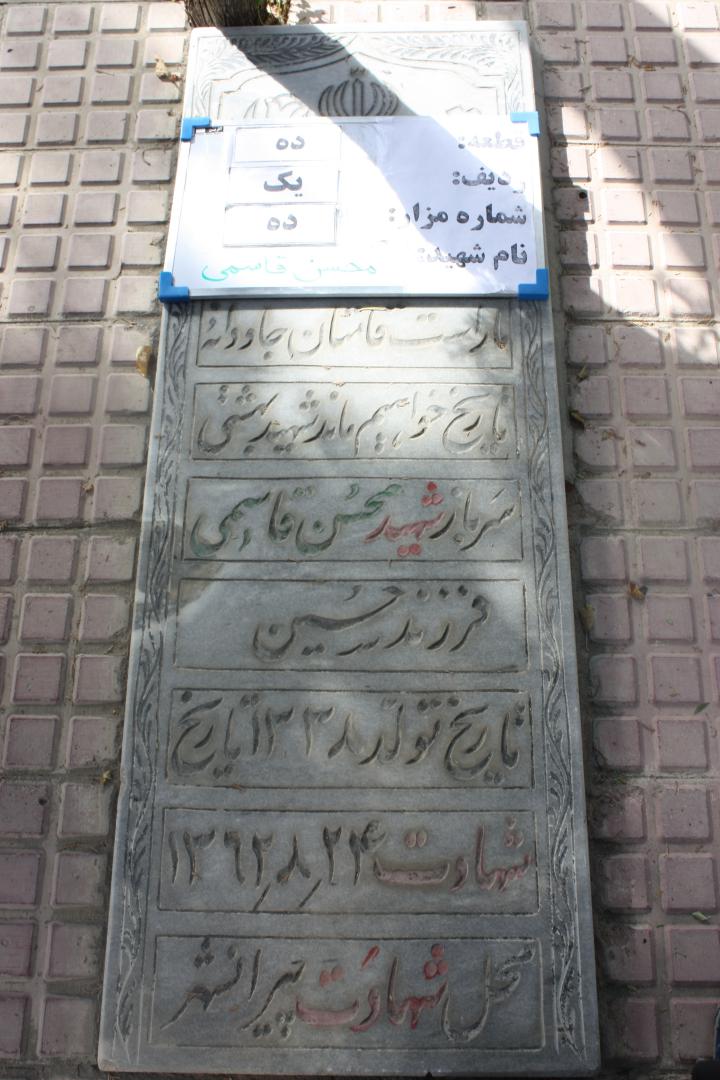 قطعه: ده
ردیف: یک
شماره مزار: ده
نام شهید: محسن قاسمی
ماراست قامتان جاودانه
تاریخ خواهیم ماند شهید بهشتی
سرباز شهید محسن قاسمی
فرزند حسین
تاریخ تولد ۱۳۳۸ تاریخ
شهادت ۱۳۶۲٫۸٫۲۴
محل شهادت پیرانشهر